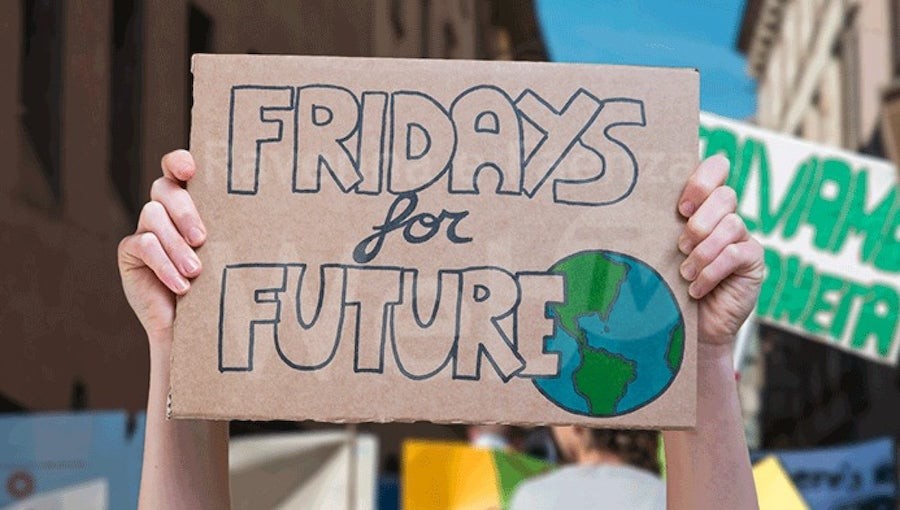 FRIDAYS
for
FUTURE
LVIAM
ANETA